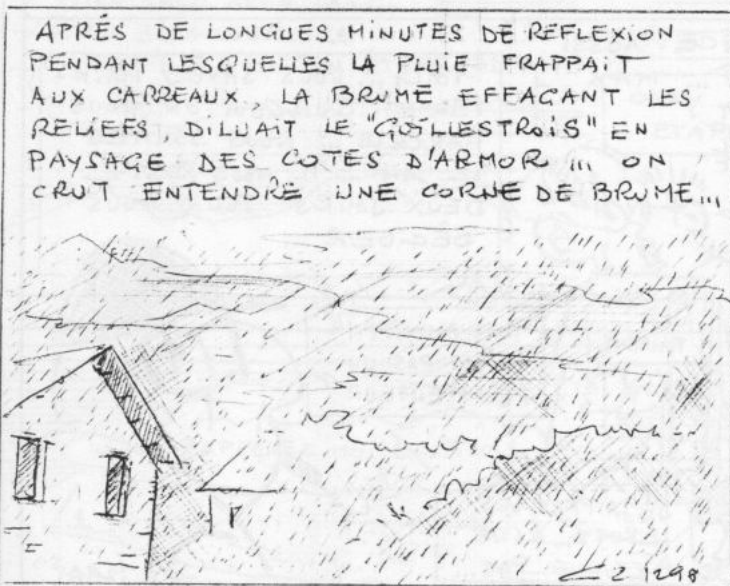 APRÉS DE LONGUES MINUTES DE REFLEXION
PENDANT LESQUELLES LA PLUIE FRAPPAIT
AUX CARREAUX, LA BRUME EFFAÇANT LES
RELIEFS, DILUAIT LE "GUILLESTROIS" EN
PAYSAGE DES COTES D'ARMOR ... ON
CRUT ENTENDRE UNE CORNE DE BRUME...